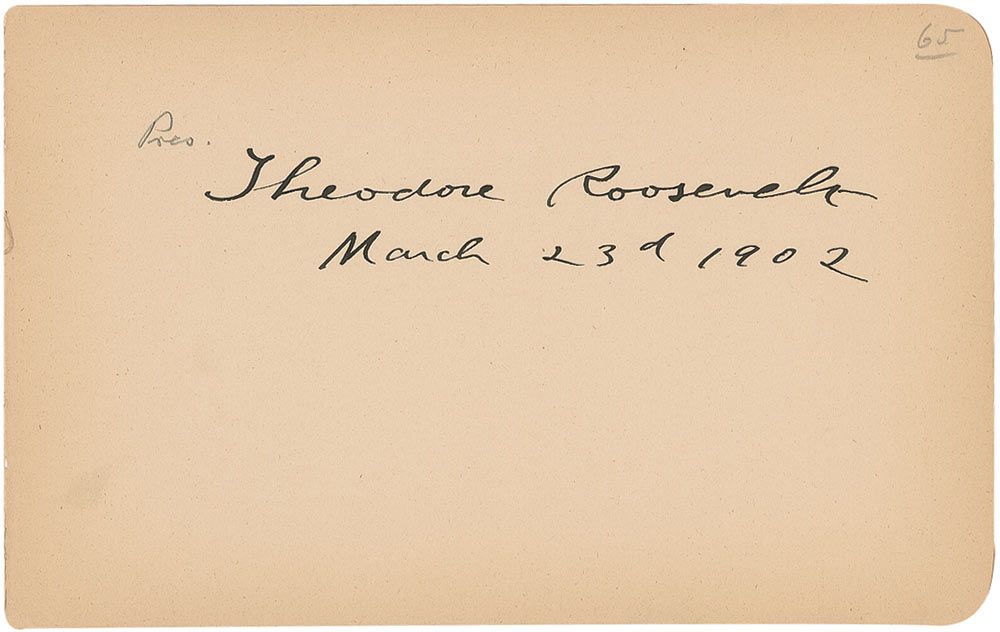 65
Pres.
Theodore Roosevelt
March 23d 1902